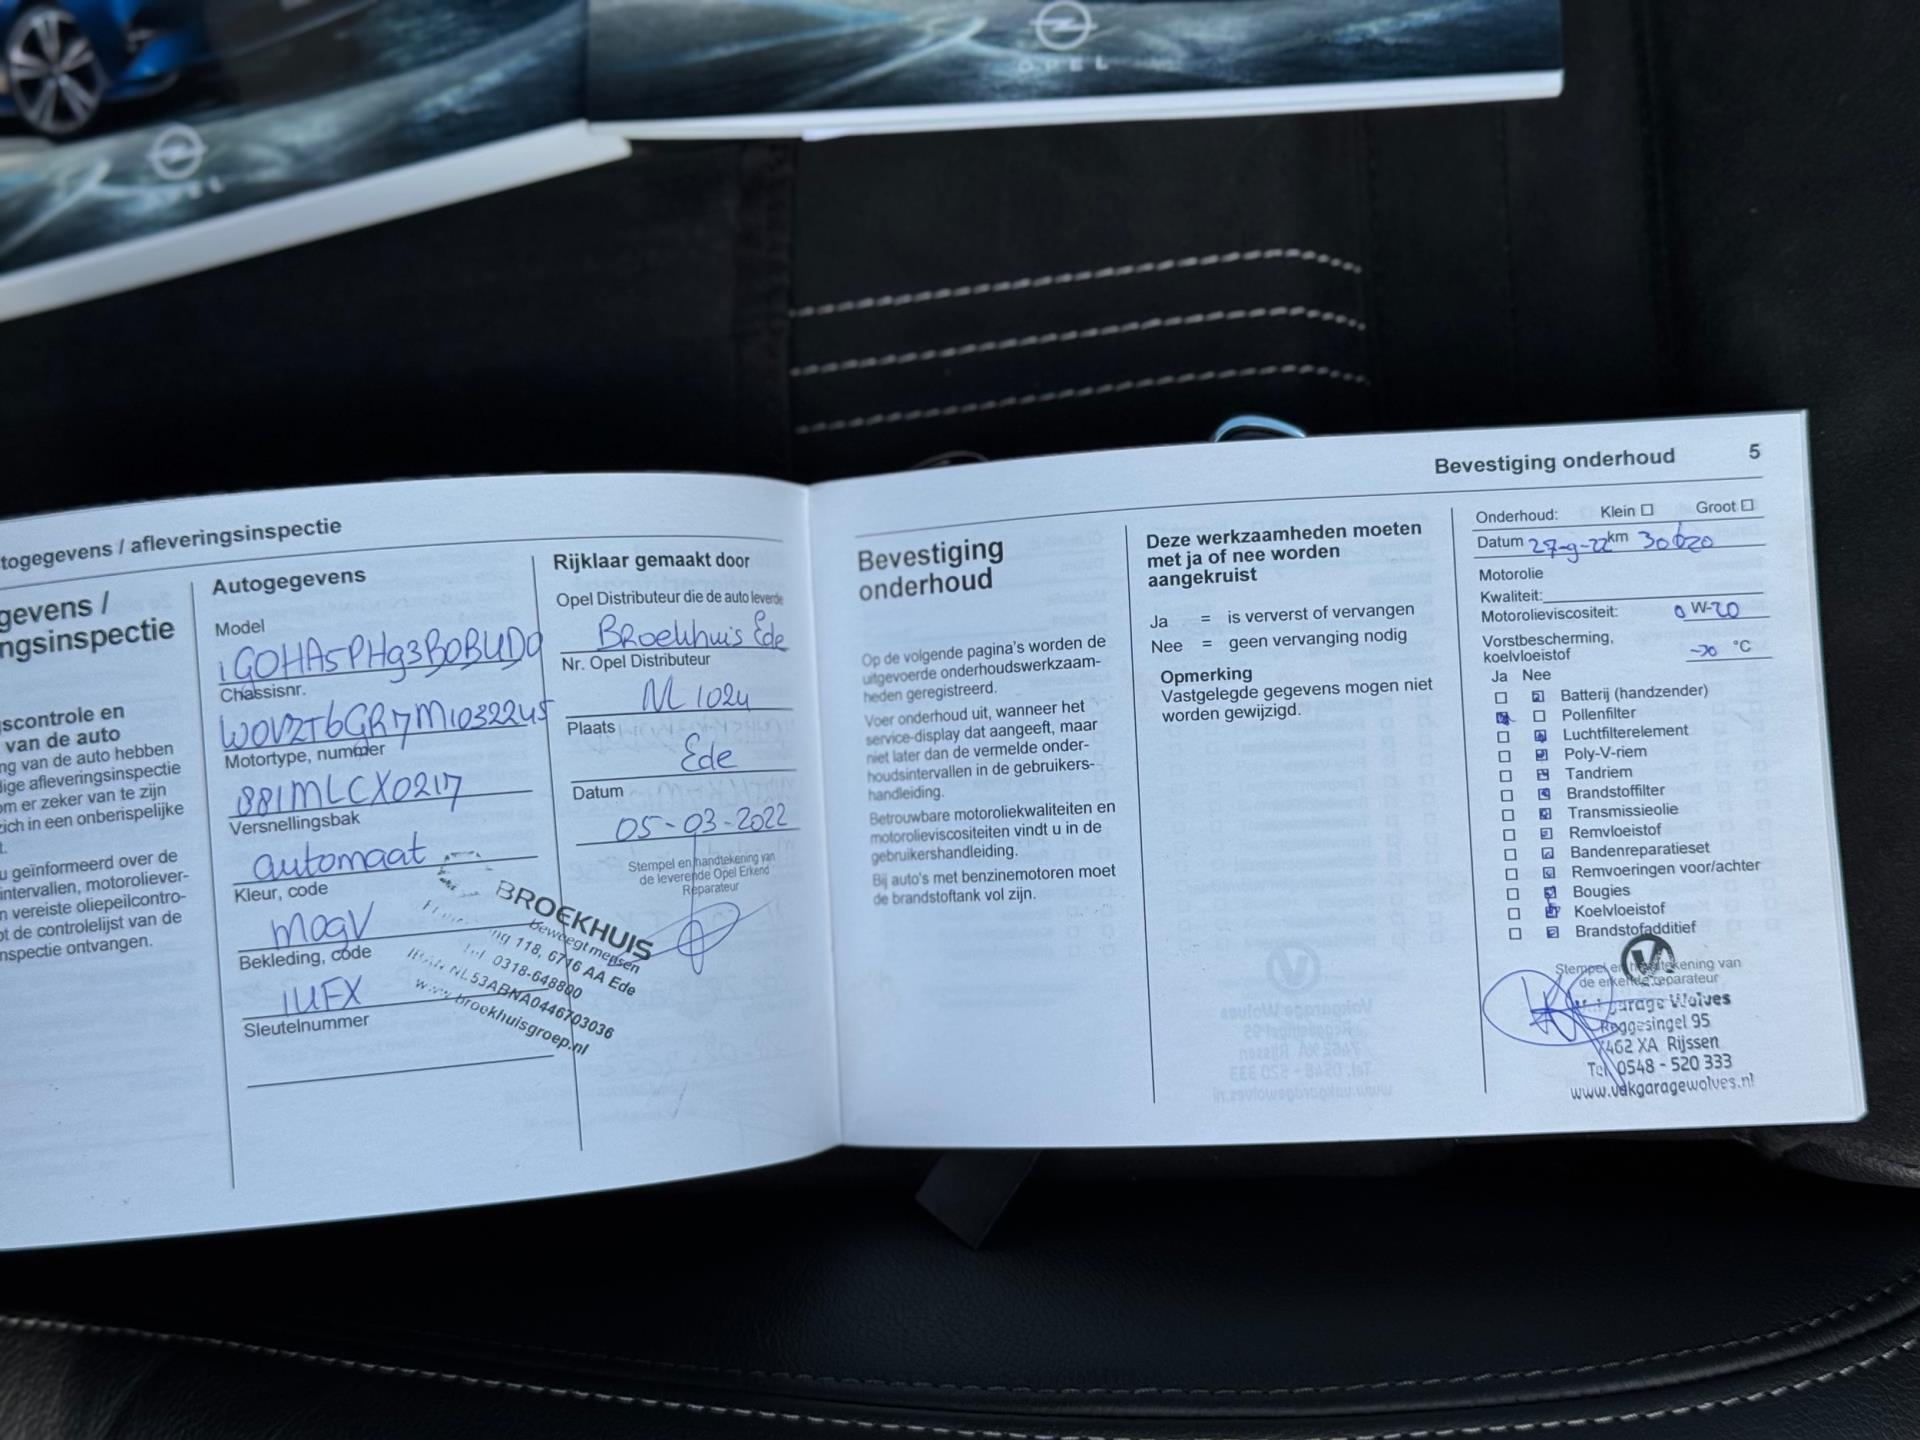 OPEL
togegevens / afleveringsinspectie
gevens /
ngsinspectie
scontrole en
van de auto
ng van de auto hebben
dige afleveringsinspectie
om er zeker van te zijn
zich in een onberispelijke
t.
u geïnformeerd over de
intervallen, motoroliever-
n vereiste oliepeilcontro-
ot de controlelijst van de
nspectie ontvangen.
Autogegevens
Model
Chassisnr.
W0VZT6GR7M1032245
Motortype, nummer
Versnellingsbak
automaat
Kleur, code
M0gV
Bekleding, code
1UFX
Sleutelnummer
Rijklaar gemaakt door
Opel Distributeur die de auto leverde
BRoekhuis Ede
Nr. Opel Distributeur
NL 1024
Plaats
Ede
Datum
05-03-2022
Stempel en handtekening van
de leverende Opel Erkend
Reparateur
BROEKHUIS
Beweegt mensen
118, 6716 AA Ede
0318-648800
IBAN NL53ABNA0446703036
www.broekhuisgroep.nl
Bevestiging onderhoud 5
Bevestiging
onderhoud
Op de volgende pagina's worden de
uitgevoerde onderhoudswerkzaam-
heden geregistreerd.
Voer onderhoud uit, wanneer het
service-display dat aangeeft, maar
niet later dan de vermelde onder-
houdsintervallen in de gebruikers-
handleiding.
Betrouwbare motoroliekwaliteiten en
motorolieviscositeiten vindt u in de
gebruikershandleiding.
Bij auto's met benzinemotoren moet
de brandstoftank vol zijn.
Deze werkzaamheden moeten
met ja of nee worden
aangekruist
Ja = is ververst of vervangen
Nee = geen vervanging nodig
Opmerking
Vastgelegde gegevens mogen niet
worden gewijzigd.
Onderhoud: Klein Groot
Datum 27-9-22 km 30620
Motorolie
Kwaliteit:
Motorolieviscositeit: 0 W-20
Vorstbescherming,
koelvloeistof °C
Ja Nee
Batterij (handzender)
Pollenfilter
Luchtfilterelement
Poly-V-riem
Tandriem
Brandstoffilter
Transmissieolie
Remvloeistof
Bandenreparatieset
Remvoeringen voor/achter
Bougies
Koelvloeistof
Brandstofadditief
Stempel en handtekening van
de erkende reparateur
garage Wolves
Roggesingel 95
7462 XA Rijssen
Tel. 0548 - 520 333
www.vakgaragewolves.nl